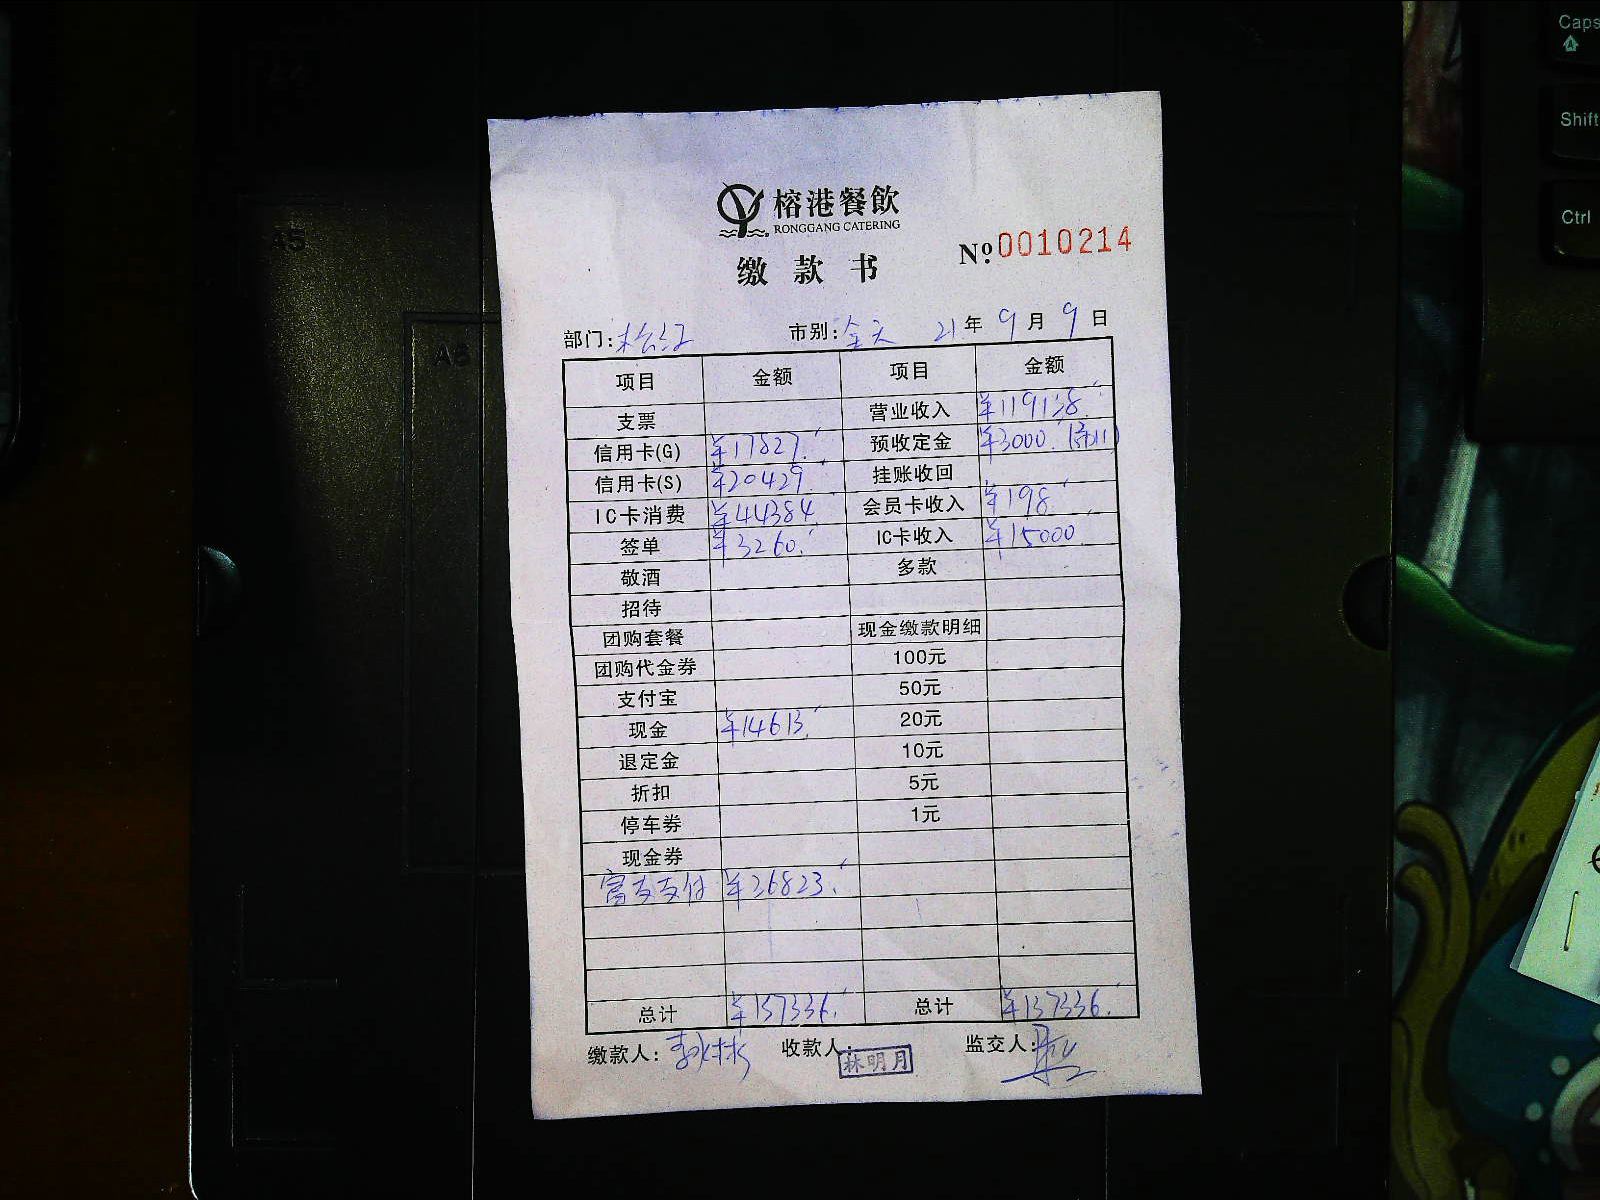 榕港餐飲
RONGGANG CATERING
缴款书
№ 0010214
部门:松江 市别:全天 21年9月9日
项目 金额 项目 金额
支票 营业收入 ¥119138.
信用卡(G) ¥17827. 预收定金 ¥3000.
信用卡(S) ¥20429. 挂账收回
IC卡消费 ¥44384 会员卡收入 ¥198.
签单 ¥3260. IC卡收入 ¥15000.
敬酒 多款
招待
团购套餐 现金缴款明细
团购代金券 100元
支付宝 50元
现金 ¥14613. 20元
退定金 10元
折扣 5元
停车券 1元
现金券
富友支付 ¥26823.
总计 ¥137336. 总计 ¥137336.
缴款人: 收款人: 林明月 监交人:
Caps
Shift
Ctrl
A5